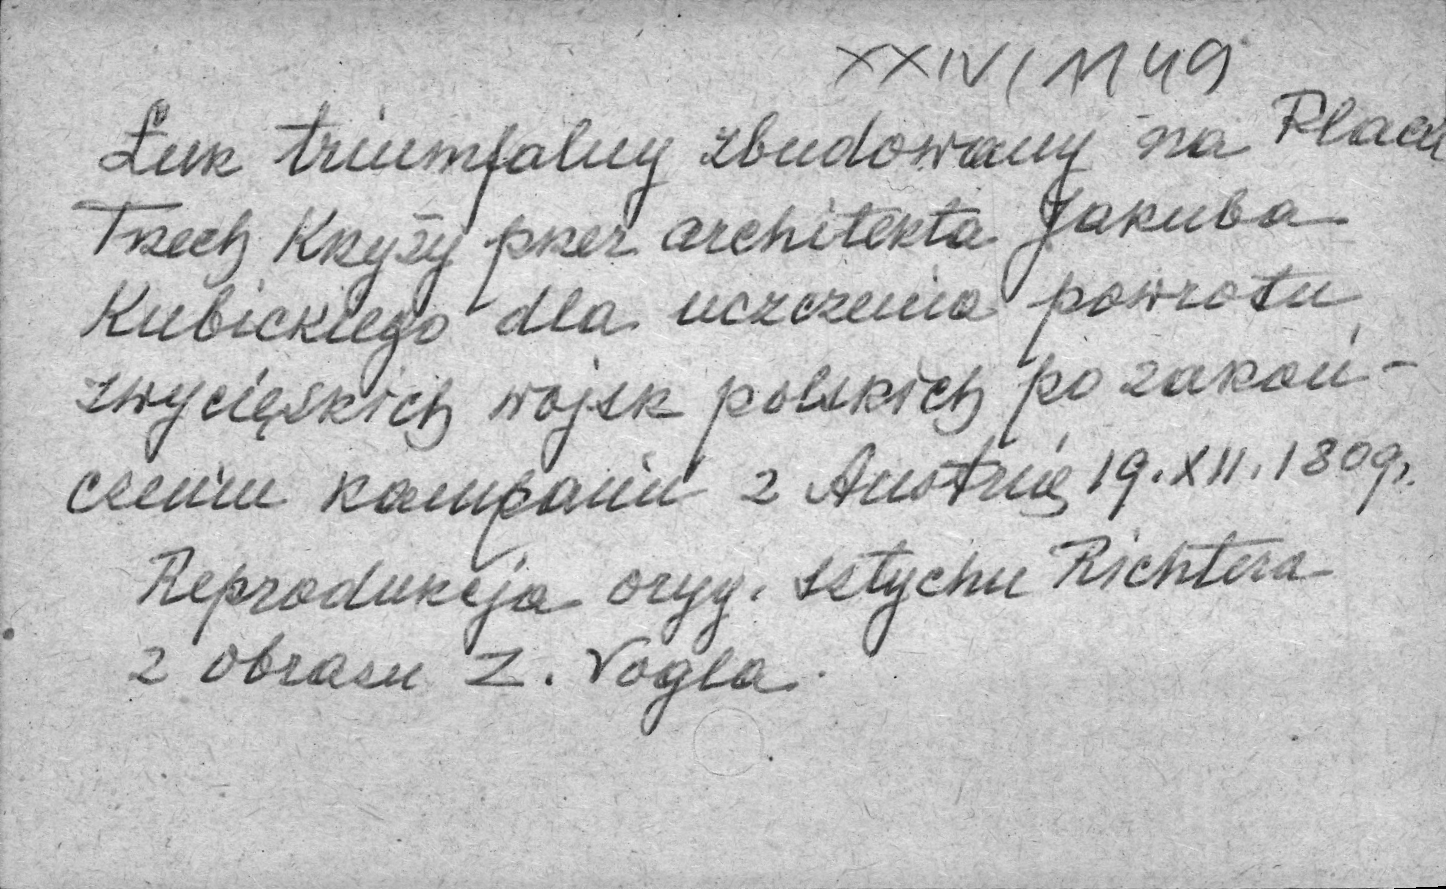 XXIV/1149
Łuk triumfalny zbudowany na Placu
Trzech Krzyży przez architekta Jakuba
Kubickiego dla uczczenia powrotu
zwycięskich wojsk polskich po zakoń-
czeniu kampanii z Austrią 19.XII.1809r.
Reprodukcja oryg. sztychu Richtera
z obrazu Z. Vogla.